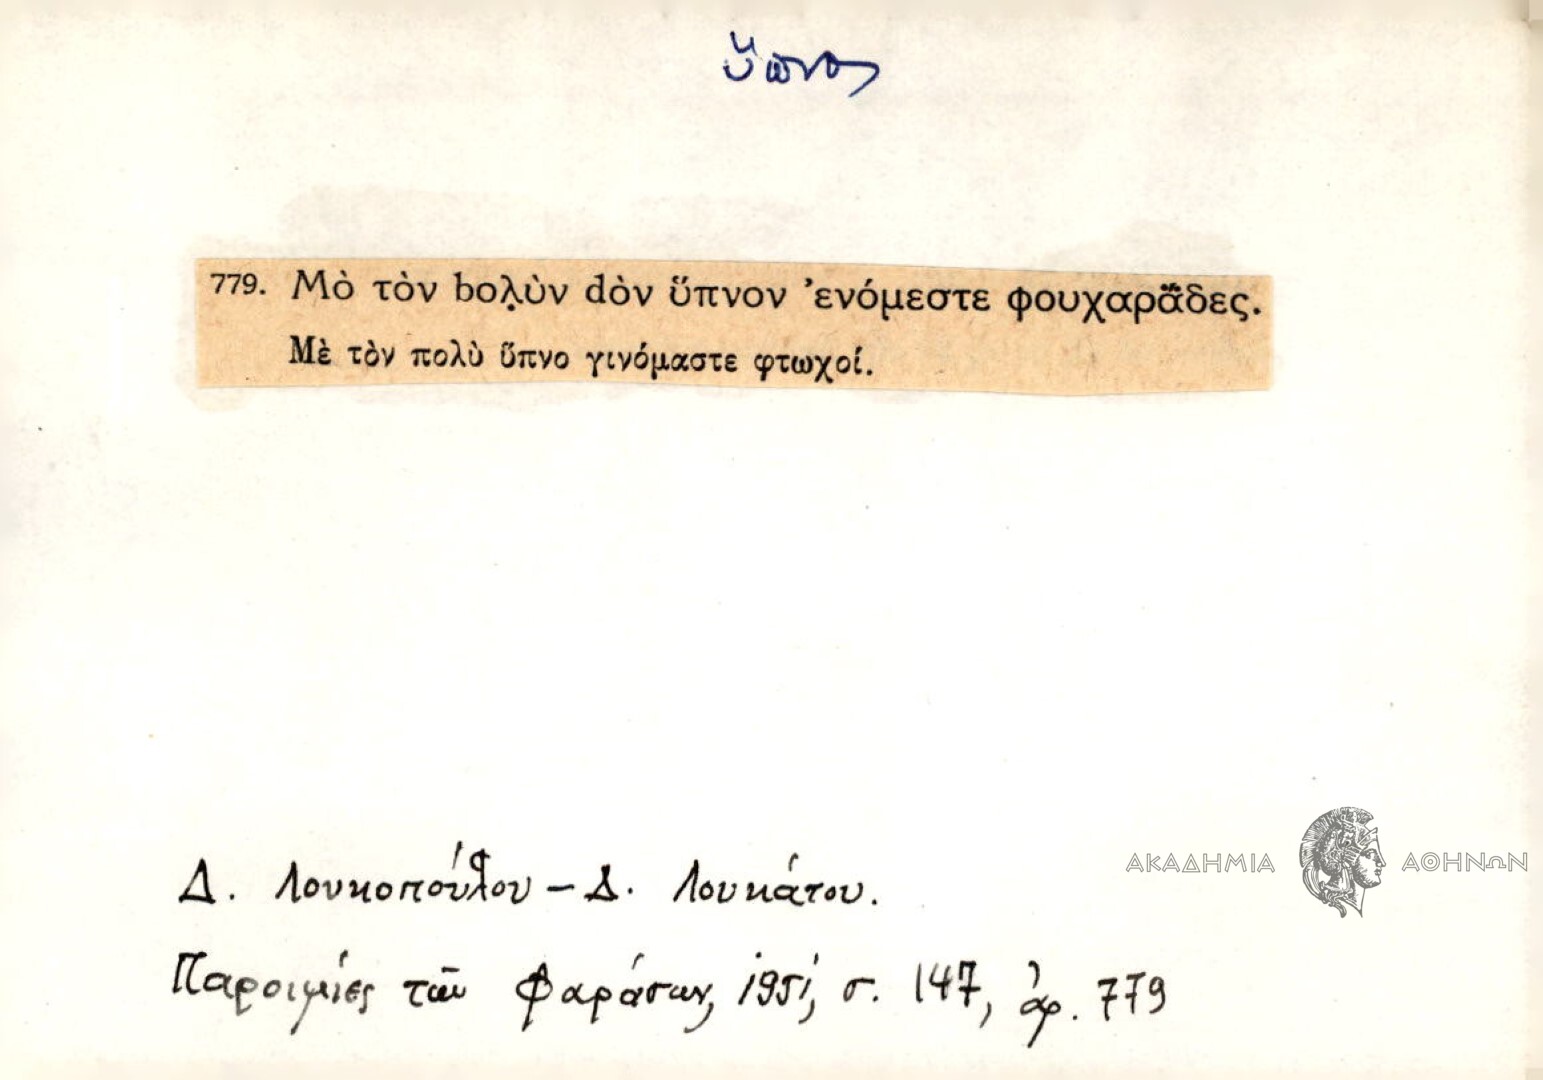 ὕπνος
779. Μὸ τὸν bολ̣ὺν dὸν ὕπνον ᾿ενόμεστε φουχαρᾴδες.
Μὲ τὸν πολὺ ὕπνο γινόμαστε φτωχοί.
ΑΚΑΔΗΜΙΑ ΑΘΗΝΩΝ
Δ. Λουκοπούλου – Δ. Λουκάτου.
Παροιμίες τῶν Φαράσων, 1951, σ. 147, ἀρ. 779